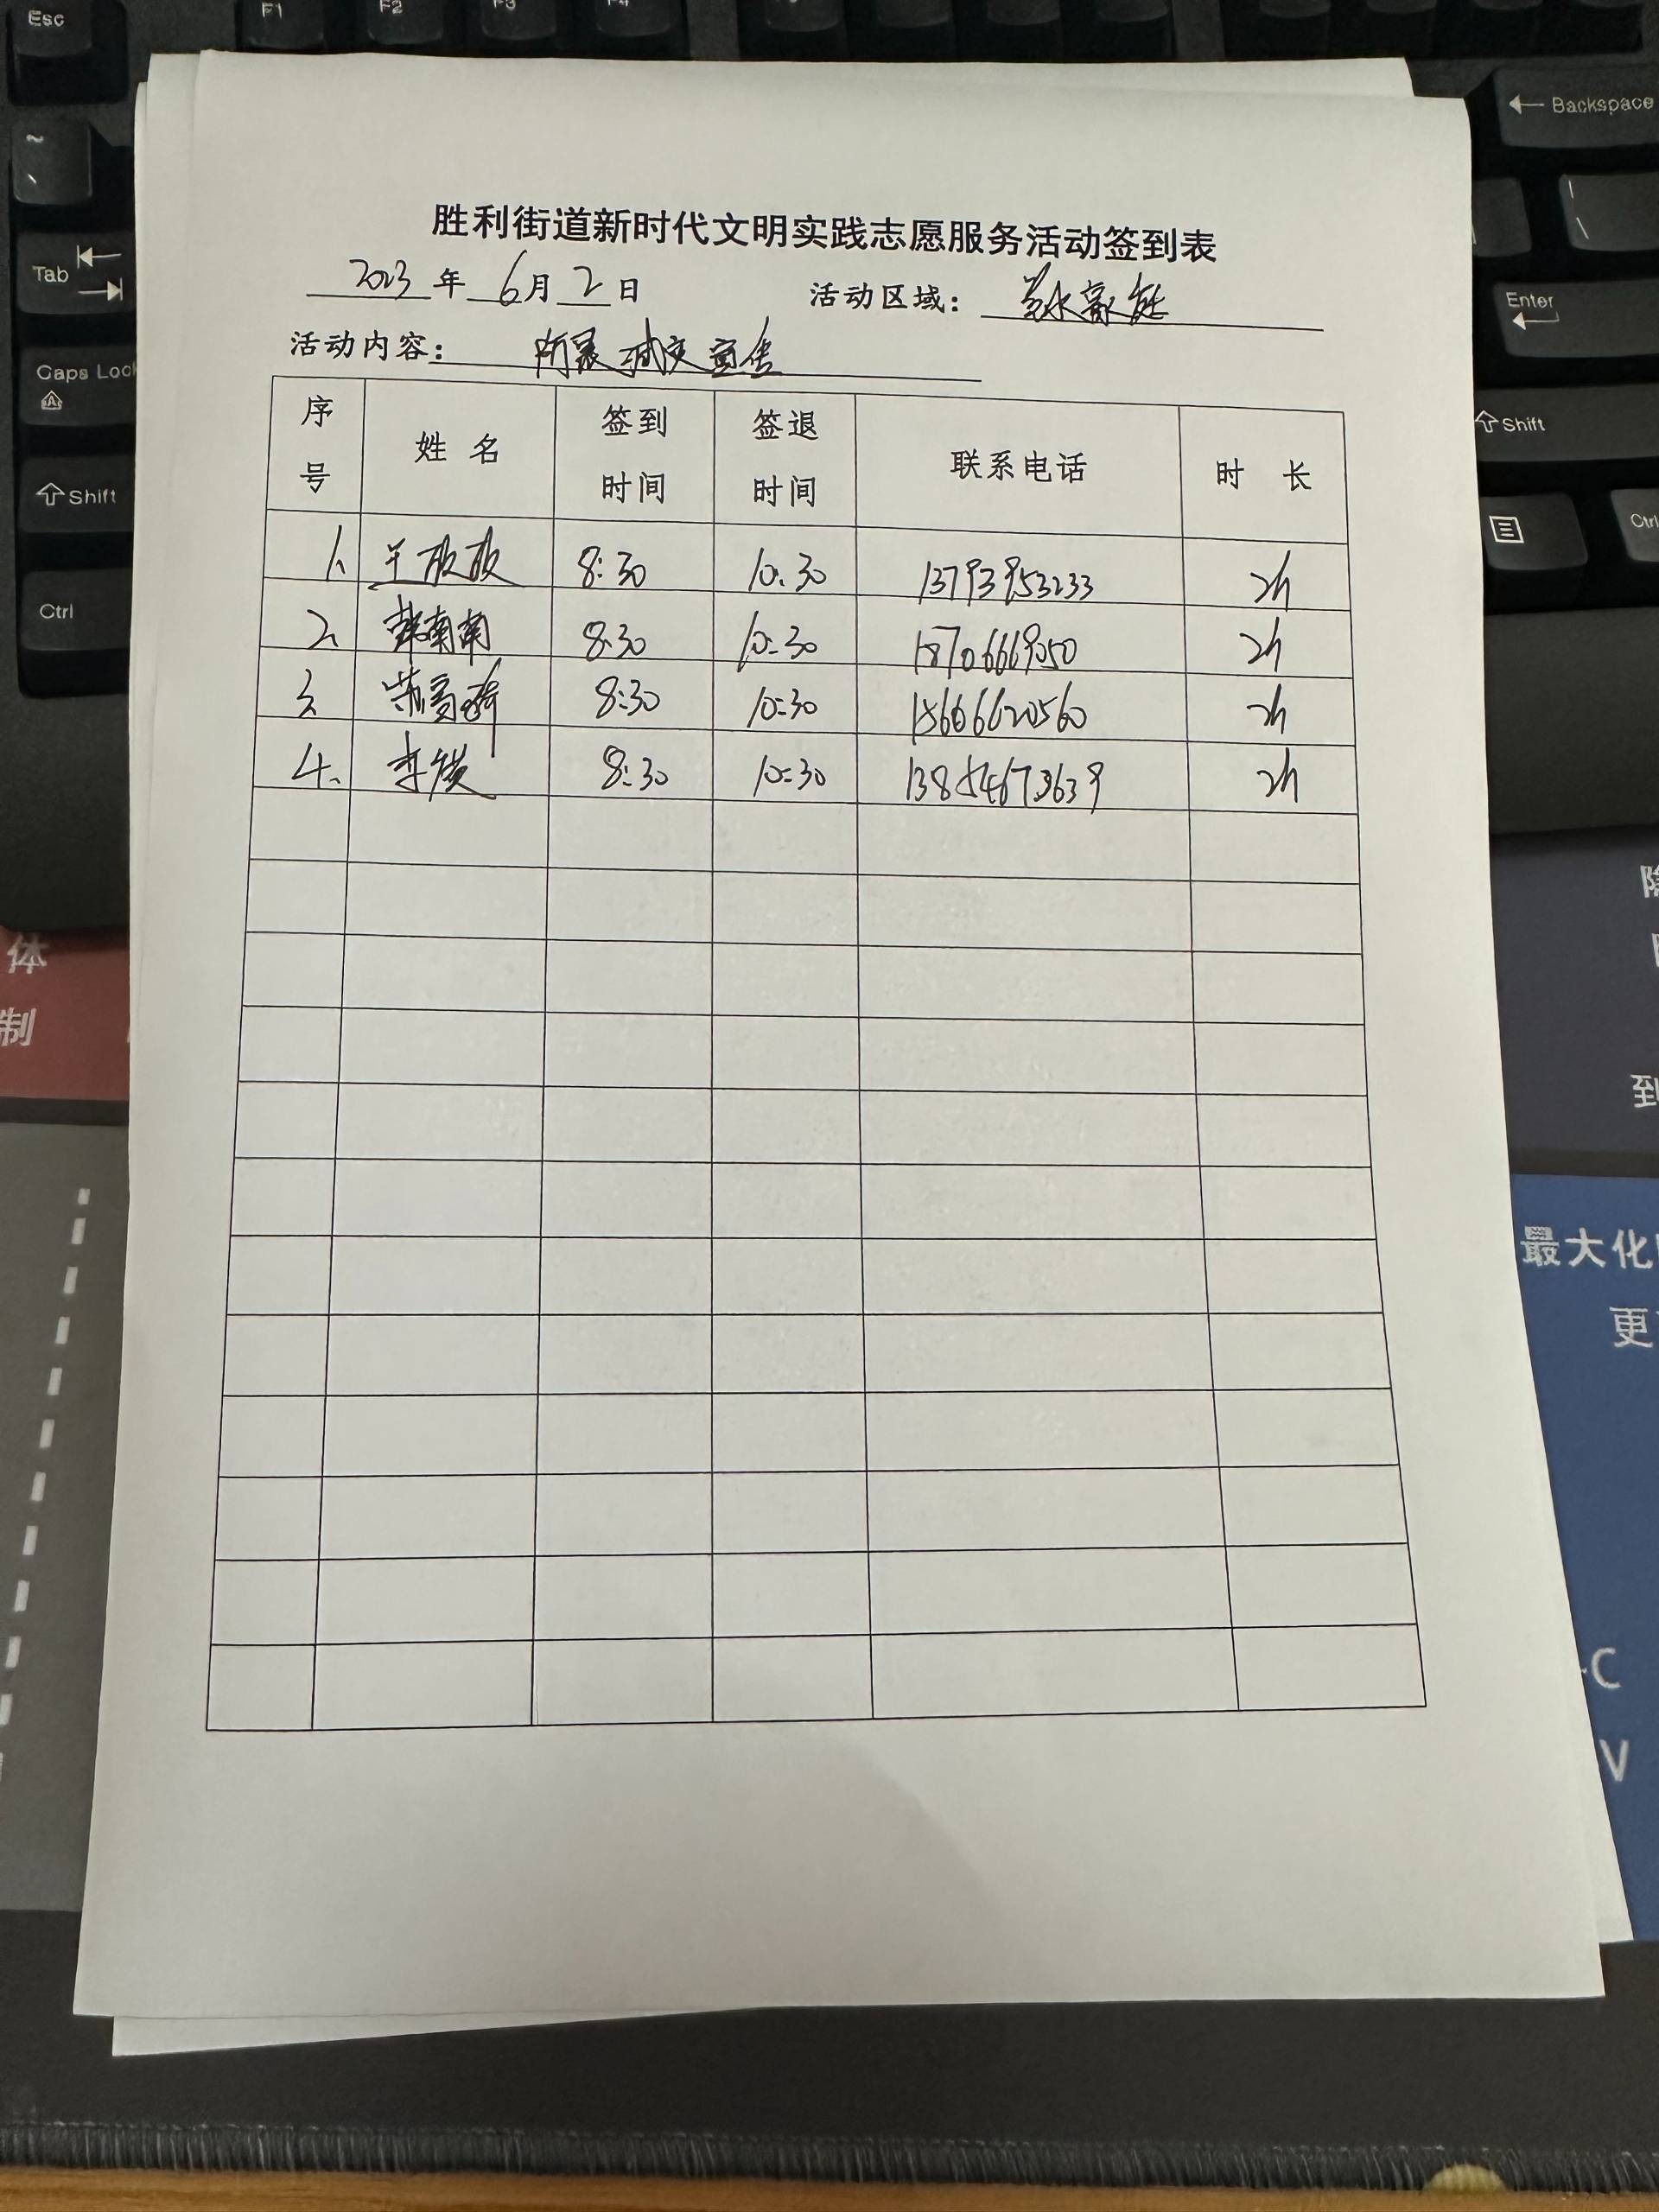 Esc F1 F2 F3 F4
← Backspace
~
Tab
Enter
Caps Lock
A
Shift
Shift
Ctrl
Ctrl
胜利街道新时代文明实践志愿服务活动签到表
2023 年 6 月 2 日 活动区域：
活动内容： 防震减灾宣传
序号 姓 名 签到时间 签退时间 联系电话 时 长
1、 8:30 10:30 13793953233 2h
2、 韩南南 8:30 10:30 18706669050 2h
3、 8:30 10:30 15666620560 2h
4、 8:30 10:30 2h
体
制
到
最大化
更
C
V